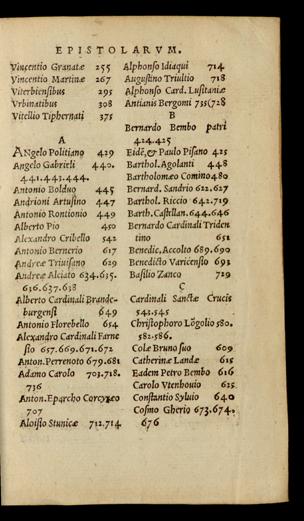 EPISTOLARVM.
Vincentio Granatæ 255
Vincentio Martinæ 267
Viterbiensibus 295
Vrbinatibus 308
Vitellio Tiphernati 375
A
ANgelo Politiano 429
Angelo Gabrieli 440.
441.443.444.
Antonio Bolduo 445
Andrioni Artusino 447
Antonio Rontionio 449
Alberto Pio 450
Alexandro Cribello 542
Antonio Bernerio 617
Andreæ Triuisano 629
Andreæ Alciato 634.635.
636.637.638
Alberto Cardinali Brande-
burgensi 649
Antonio Florebello 654
Alexandro Cardinali Farne
sio 657.669.671.672
Anton. Perenoto 679.681
Adamo Carolo 703.718.
736
Anton. Eparcho Corcyræo
707
Aloisio Stunicæ 712.714
Alphonso Idiaqui 714
Augustino Triultio 718
Alphonso Card. Lusitaniæ
Antianis Bergomi 735(728
B
Bernardo Bembo patri
424.425
Eidē, & Paulo Pisano 425
Barthol. Agolanti 448
Bartholomæo Comino 480
Bernard. Sandrio 622.627
Barthol. Riccio 642.719
Barth. Castellan. 644.646
Bernardo Cardinali Triden
tino 651
Benedic. Accolto 689.690
Benedicto Varicensio 693
Basilio Zanco 729
C
Cardinali Sanctæ Crucis
543.545
Christophoro Lōgolio 580.
582.586.
Colæ Bruno suo 609
Catherinæ Landæ 615
Eadem Petro Bembo 616
Carolo Vtenhouio 625
Constantio Syluio 640
Cosmo Gherio 673.674.
676